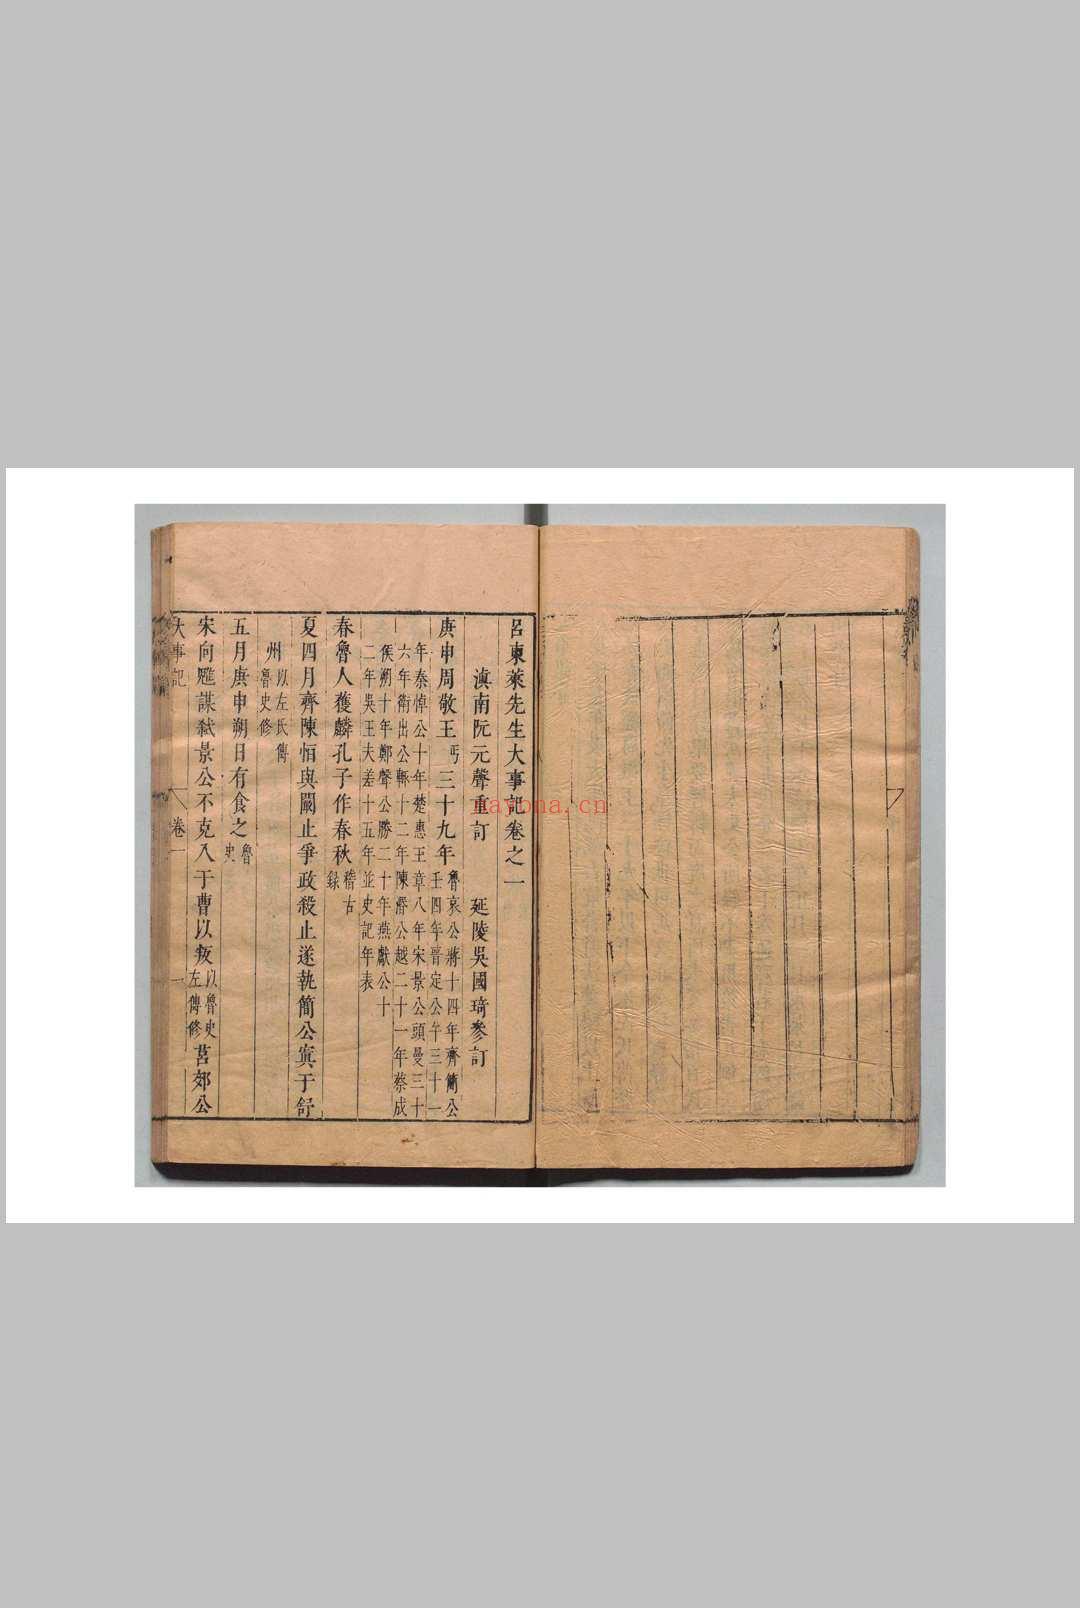 呂東萊先生大事記卷之一
滇南阮元聲重訂 延陵吳國琦參訂
庚申周敬王丐三十九年魯哀公蔣十四年齊簡公
壬四年晉定公午三十一
年秦悼公十年楚惠王章八年宋景公頭曼三十
六年衛出公輒十二年陳湣公越二十一年蔡成
侯朔十年鄭聲公勝二十年燕獻公十
二年吳王夫差十五年並史記年表
春魯人獲麟孔子作春秋稽古
錄
夏四月齊陳恒與闞止爭政殺止遂執簡公寘于舒
州以左氏傳
魯史修
五月庚申朔日有食之魯
史
宋向魋謀弒景公不克入于曹以叛以魯史
左傳修莒郊公
大事記 卷一 一
nayona.cn